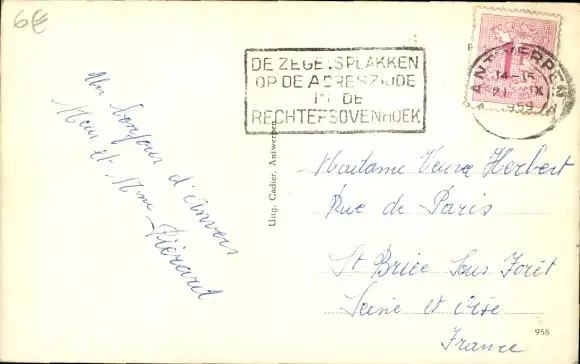 6€
DE ZEGELS PLAKKEN
OP DE ADRESZIJDE
IN DE
RECHTERBOVENHOEK
1
ANTWERPEN
14-15
IX
1959
Un bonjour d'Anvers
Mons et Mme
Piérard
Uitg. Cadier, Antwerpen
Madame Veuve Herbert
Rue de Paris
St Brice Sous Forêt
Seine et Oise
France
958